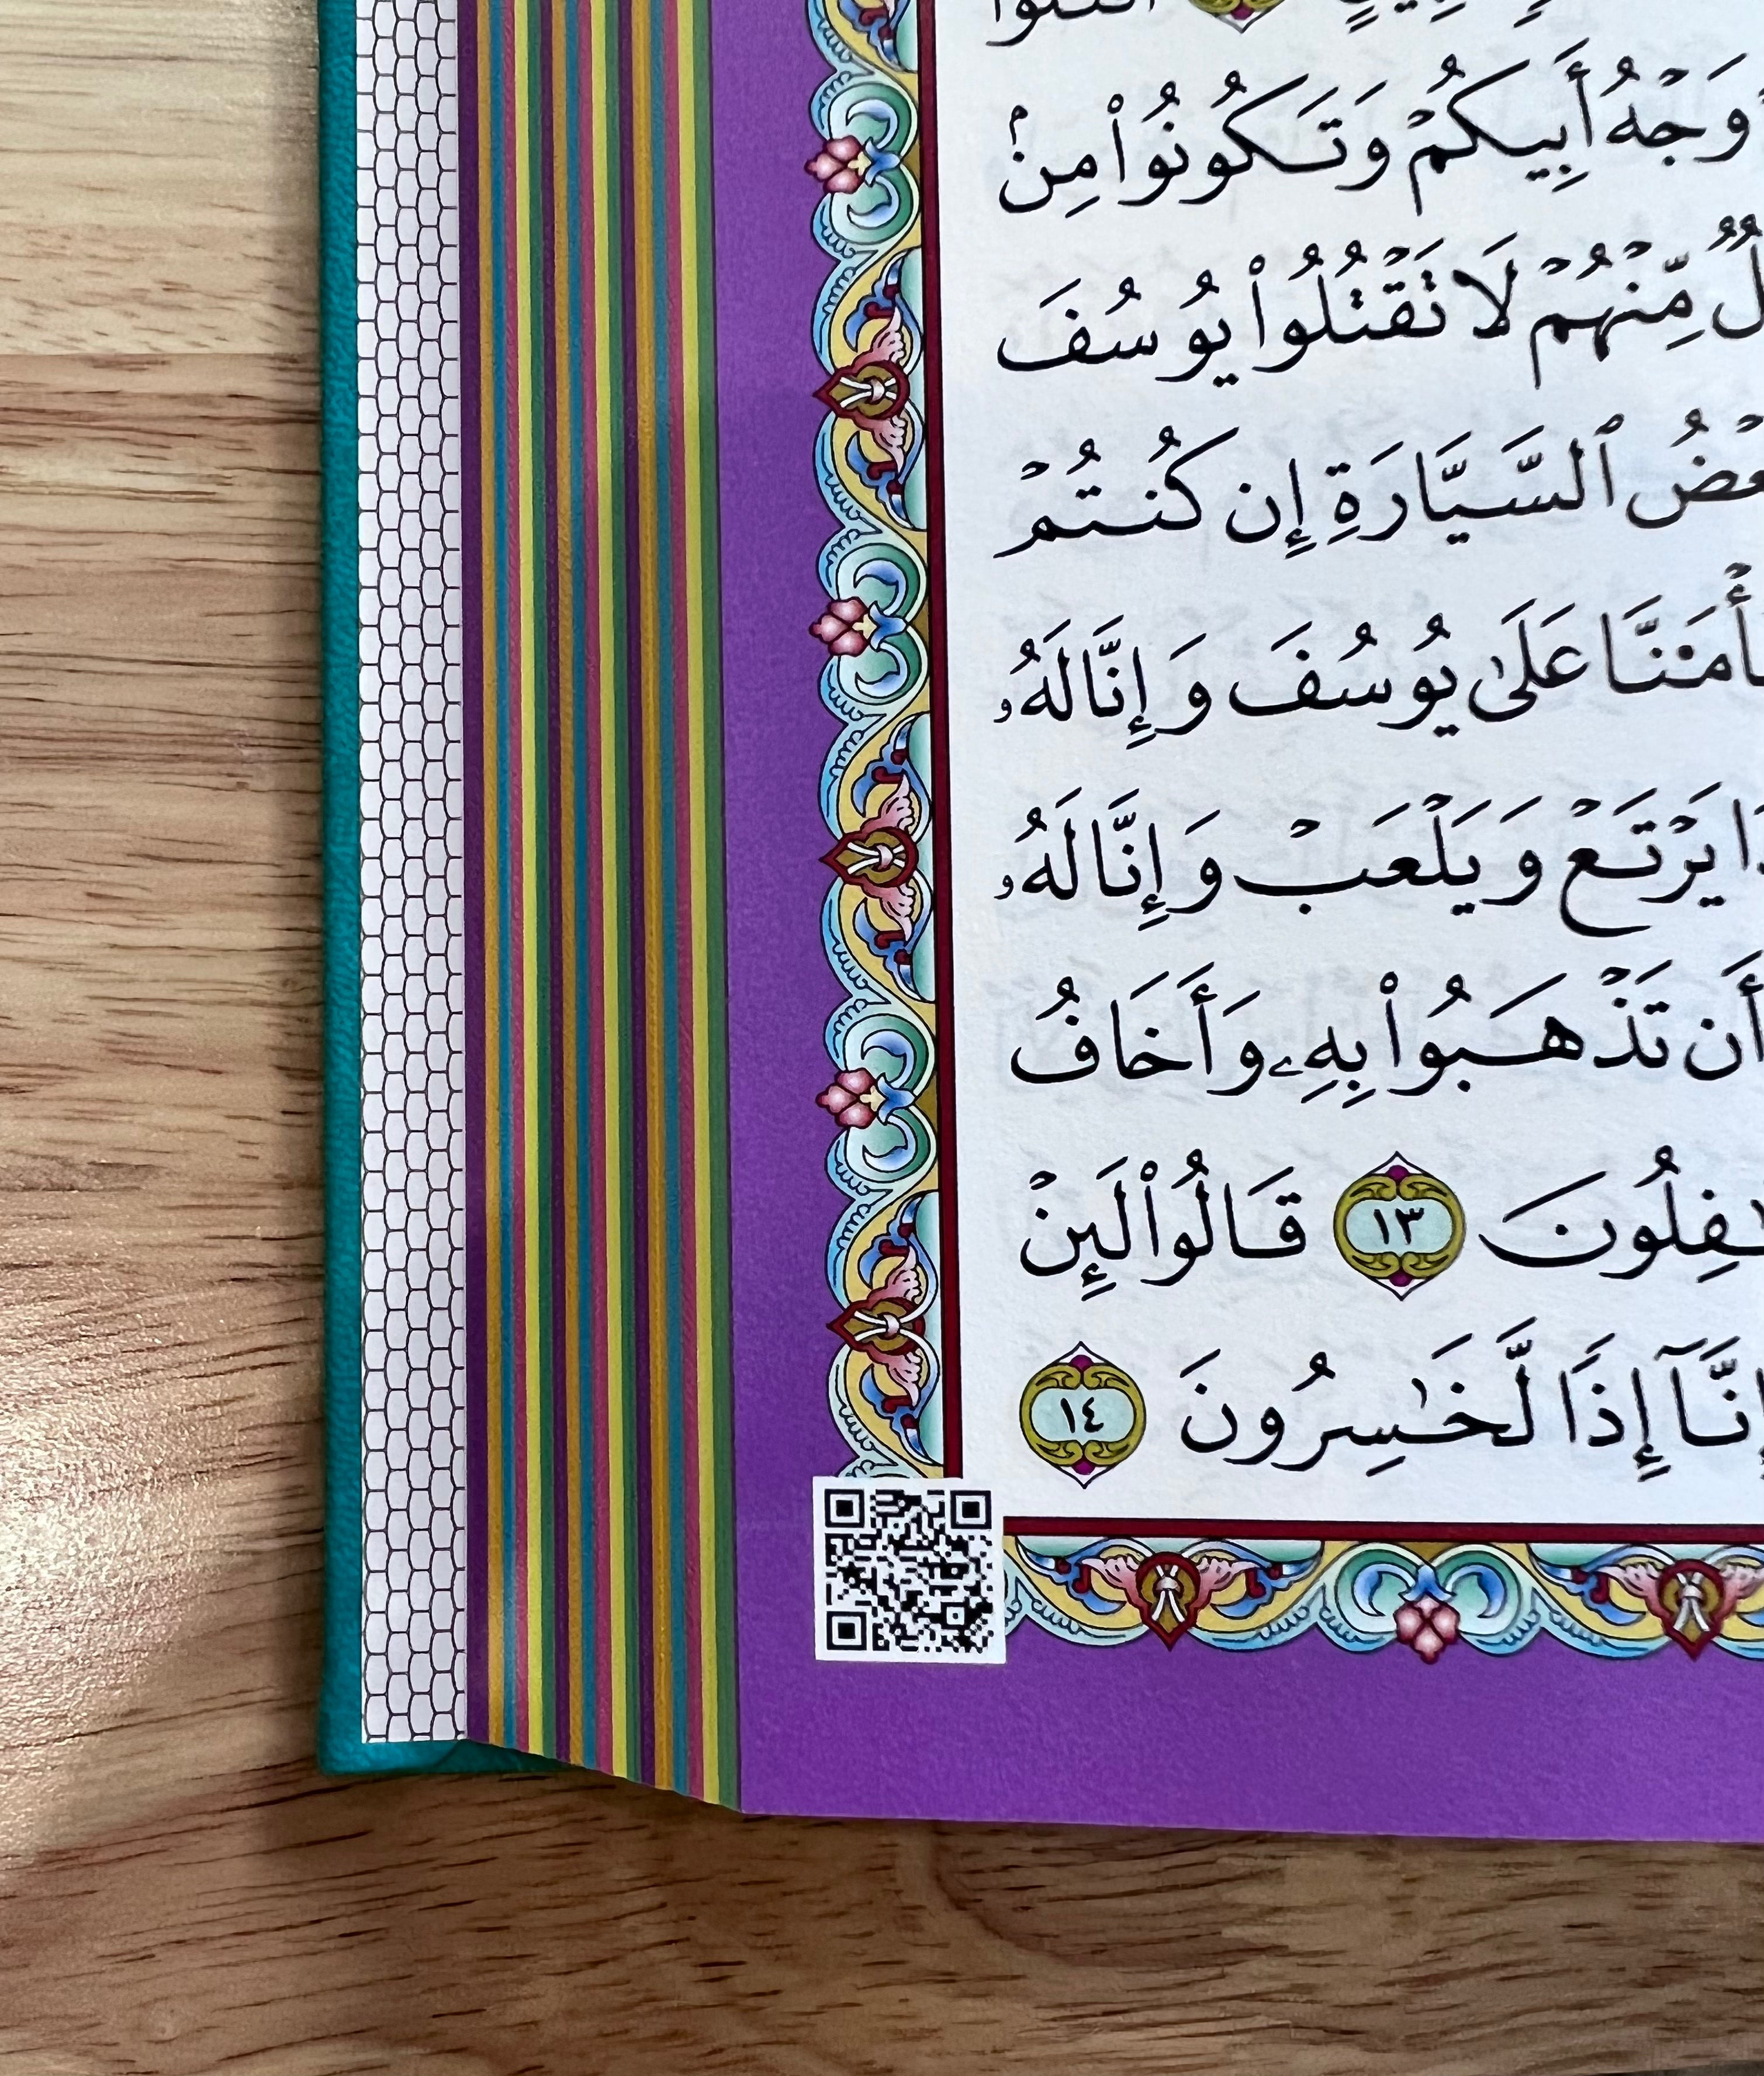 وَجْهُ أَبِيكُمْ وَتَكُونُوا۟ مِنۢ
مِّنْهُمْ لَا تَقْتُلُوا۟ يُوسُفَ
ٱلسَّيَّارَةِ إِن كُنتُمْ
عَلَىٰ يُوسُفَ وَإِنَّا لَهُۥ
يَرْتَعْ وَيَلْعَبْ وَإِنَّا لَهُۥ
أَن تَذْهَبُوا۟ بِهِۦ وَأَخَافُ
١٣ قَالُوا۟ لَئِنْ
إِنَّآ إِذًا لَّخَـٰسِرُونَ ١٤